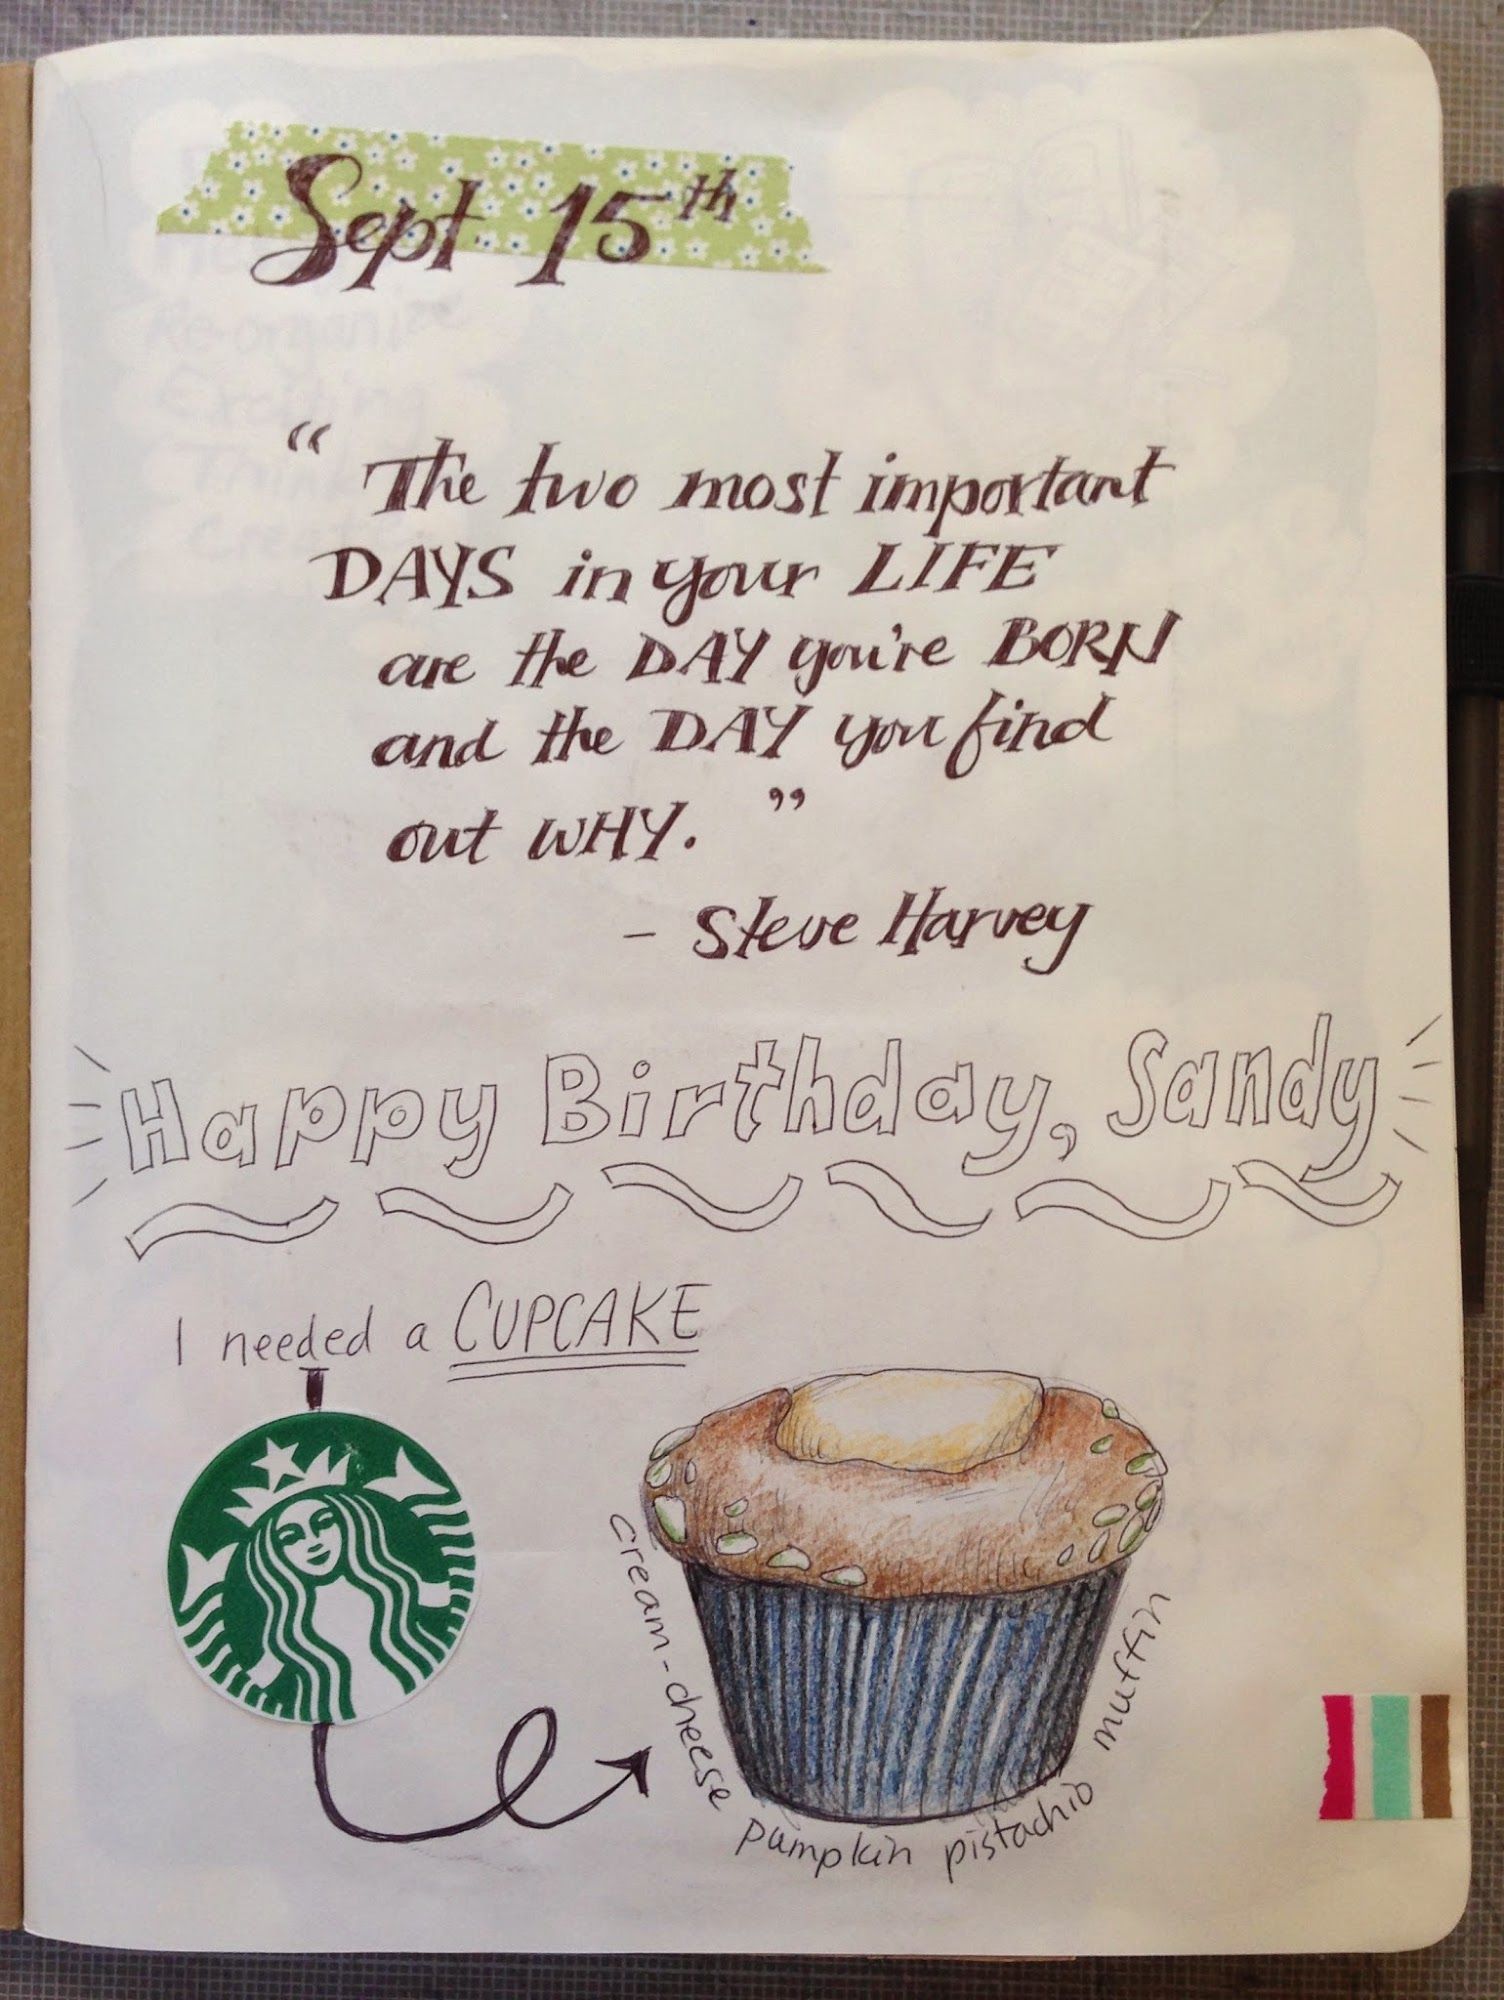 Sept 15th
“The two most important
DAYS in your LIFE
are the DAY you're BORN
and the DAY you find
out WHY.”
- Steve Harvey
Happy Birthday, Sandy
I needed a CUPCAKE
cream-cheese pumpkin pistachio muffin
Re-organise